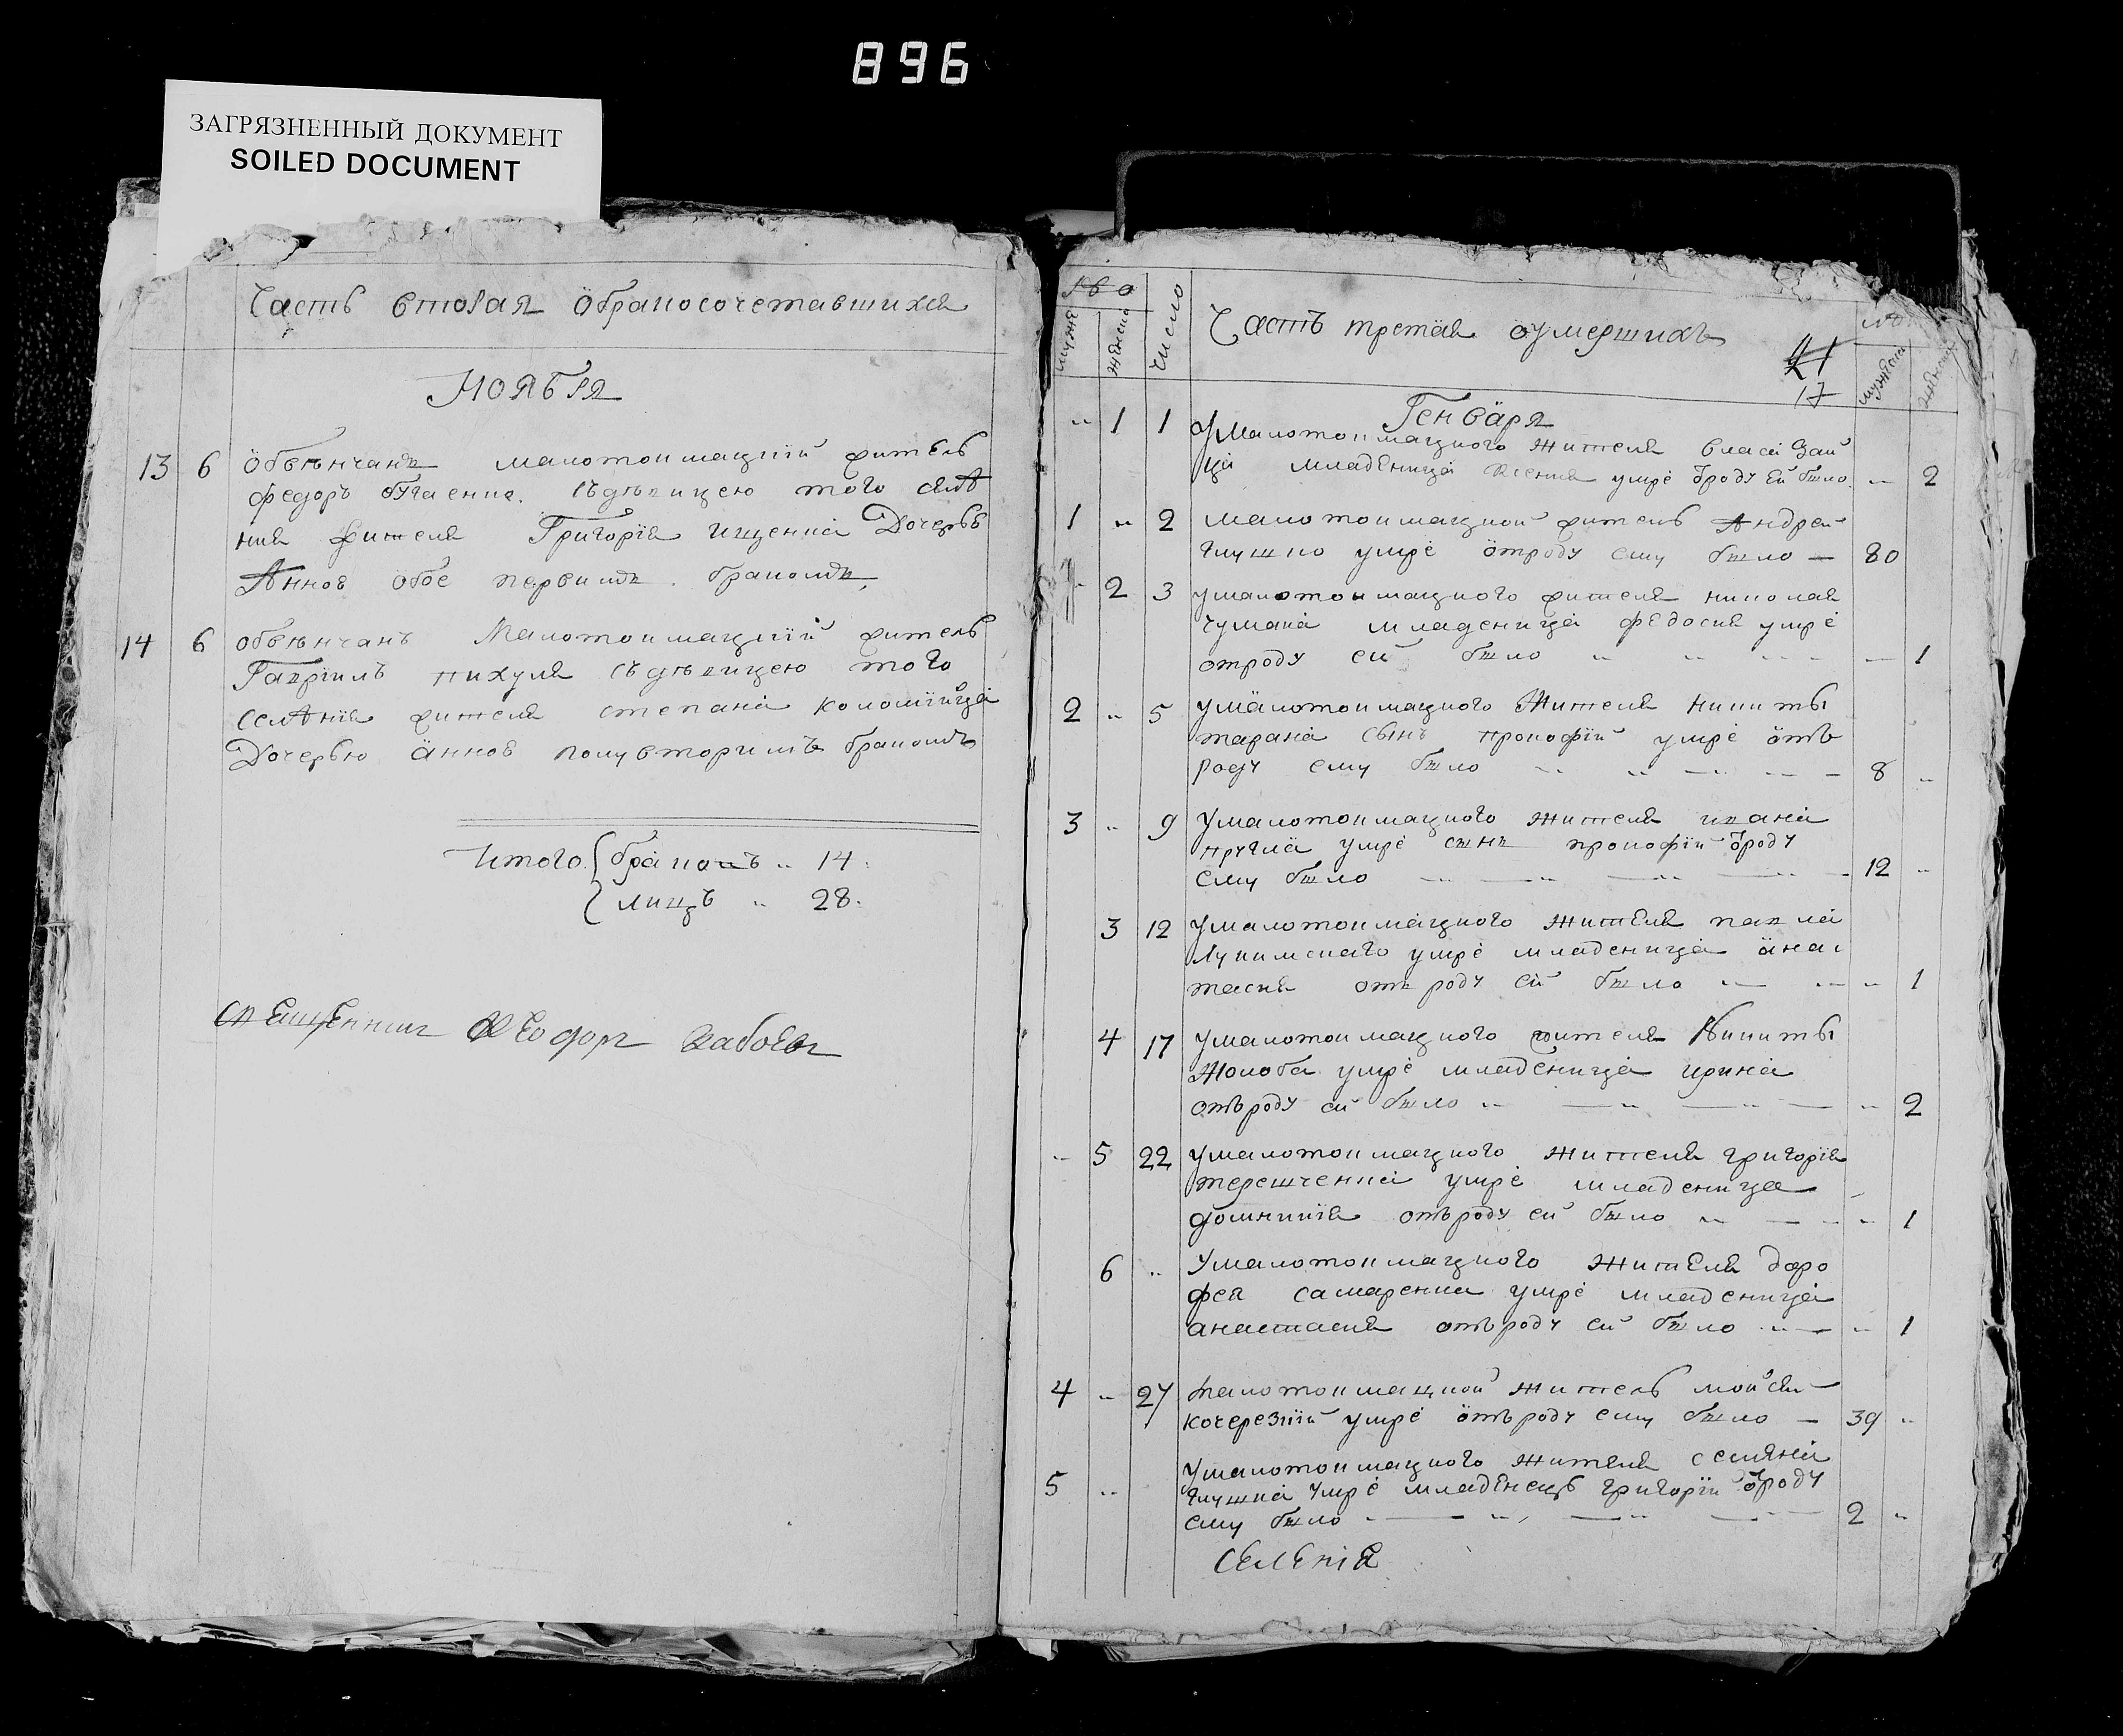 896
ЗАГРЯЗНЕННЫЙ ДОКУМЕНТ
SOILED DOCUMENT
Часть вторая ӧбракосочетавшихся
НОЯБРЯ
13 6 Ӧбвѣнчанъ малотокмацкїй житель
федоръ съдѣвицею того селѣ
ния жителя Григорїя ищенка Дочерью
Анною ӧбое первимъ бракомъ
14 6 обвѣнчанъ Малотокмацкїй житель
Гаврїилъ пикуля съдѣвицею того
селѣнїя жителя степана коломїйца
Дочерью анною полувторимъ бракомъ
Итого браковъ 14
лицъ 28.
священникъ Ѳеодоръ
число
Часть третая ӧумершихъ
мужеска
женска
17
Генваря
1 1 Умалотокмацкого жителя власа Зай
ца младеница ксения умре ӧроду ей было 2
1 2 малотокмацкой житель Андрей
глушко умре ӧтроду ему было 80
2 3 умалотокмацкого жителя николая
чумака младеница федосия умре
отроду ей было 1
2 5 умалотокмацкого жителя никиты
тарана сынъ прокофїй умре ӧтъ
роду ему было 8
3 9 Умалотокмацкого жителя ивана
умре сынъ прокофїй ӧроду
ему было 12
3 12 умалотокмацкого жителя павла
умре младеница анас
тасия отъ роду ей было 1
4 17 умалотокмацкого жителя Никиты
жолоба умре младеница ирина
отъроду ей было 2
5 22 умалотокмацкого жителя григорїя
терещенка умре младеница
домникїя отъроду ей было 1
6 Умалотокмацкого жителя доро
фея самаренка умре младеница
анастасия отъроду ей было 1
4 27 малотокмацкой житель мойсей
кочерезкїй умре ӧтъроду ему было 39
5 Умалотокмацкого жителя
глушка умре младенецъ григорїй ӧроду
ему было 2
селенїя